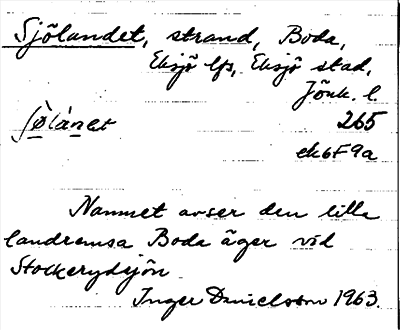 Sjölandet, strand, Boda,
Eksjö lfs, Eksjö stad,
Jönk. l.
265
ek6F9a
Namnet avser den lilla
landremsa Boda äger vid
Stockerydsjön
Inger Danielsson 1963.